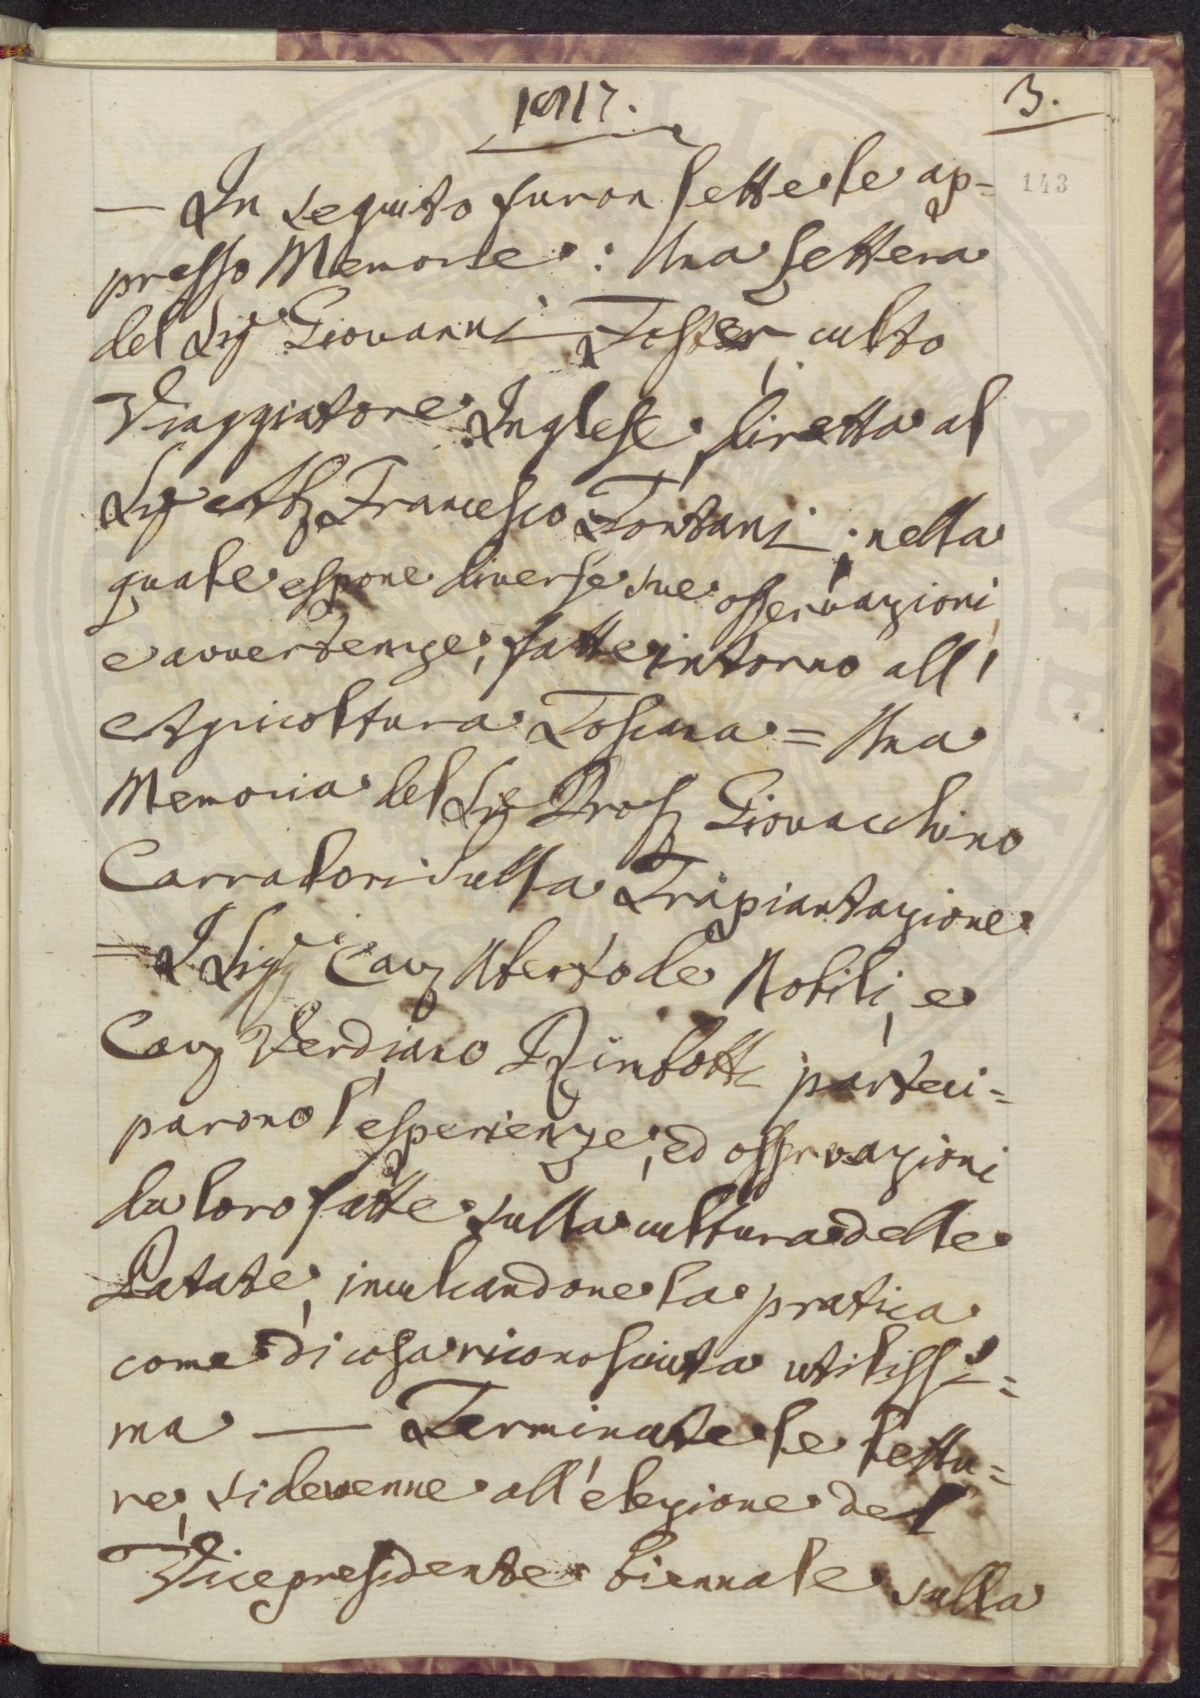 1817. 3.
143
— In seguito furon lette le ap=
presso Memorie: Una Lettera
del Sig.r Giovanni Foster, culto
Viaggiatore Inglese, diretta al
Sig.r Ab. Francesco Fontani; nella
quale espone diverse sue osservazioni,
e avvertenze, fatte intorno all'
Agricoltura Toscana = Una
Memoria del Sig. Prof. Giovacchino
Carradori sulla Trapiantazione
= I Sigg.ri Cav. Uberto de Nobili, e
Cav. Verdiano Rimbotti parteci=
parono l'esperienze, ed osservazioni
da loro fatte sulla cultura delle
Patate, inculcandone la pratica
come di cosa riconosciuta utilissi=
ma — Terminate le lettu=
re, si devenne all'elezione del
Vicepresidente biennale sulla